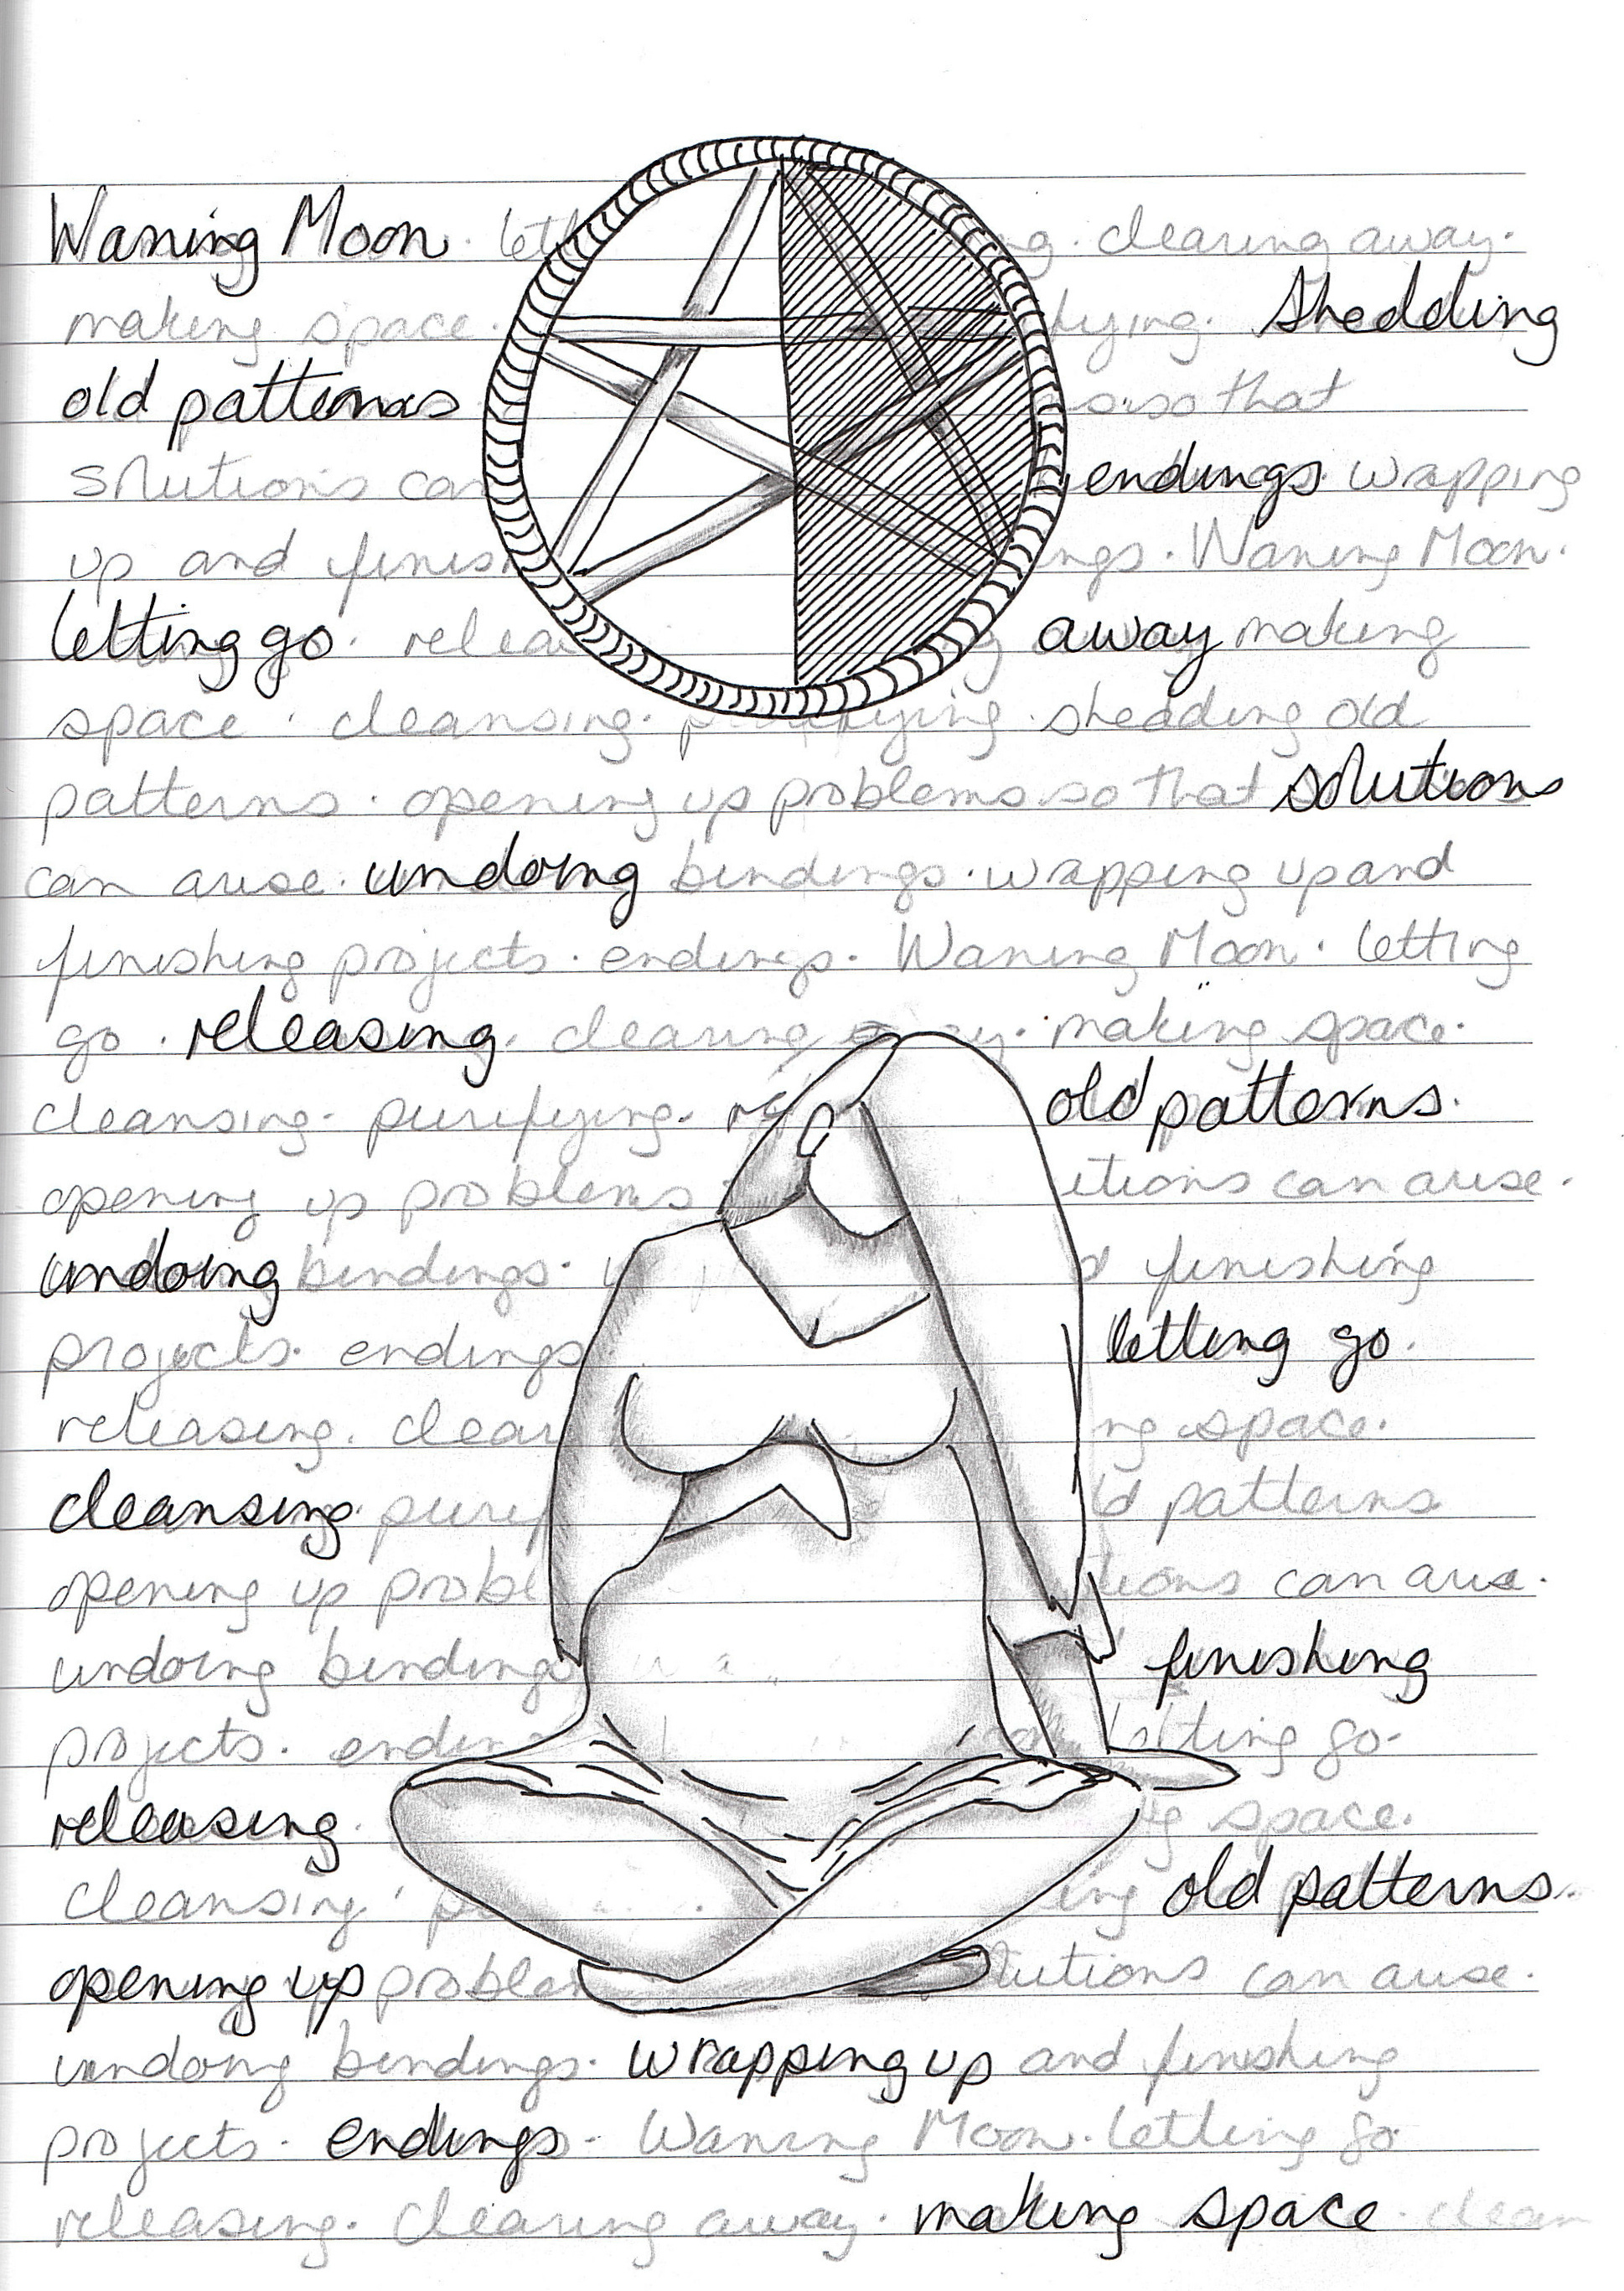 Waning Moon. clearing away.
making space. Shedding
old patterns so that
solutions can endings wrapping
up and finish Waning Moon.
letting go. away making
space. cleansing. purifying. shedding old
patterns. opening up problems so that solutions
can arise. undoing bindings. wrapping up and
finishing projects. endings. Waning Moon. letting
go. releasing. clearing away. making space.
cleansing. purifying. old patterns.
opening up problems can arise.
undoing bindings. finishing
projects. endings letting go.
releasing. clear space.
cleansing. patterns
opening up can arise.
undoing bindings finishing
projects. letting go.
releasing. space.
cleansing. old patterns.
opening up can arise.
undoing bindings. wrapping up and finishing
projects. endings. Waning Moon. letting go
releasing. clearing away. making space. clean